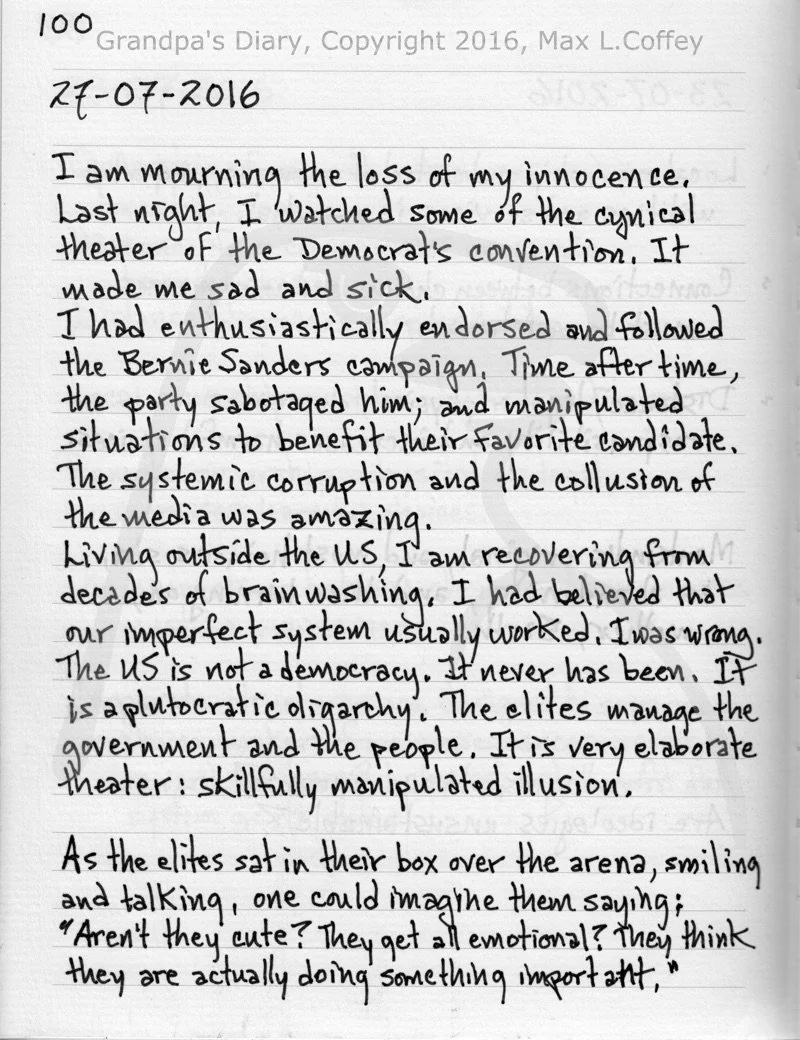 100
Grandpa's Diary, Copyright 2016, Max L.Coffey
27-07-2016
I am mourning the loss of my innocence.
Last night, I watched some of the cynical
theater of the Democrat's convention. It
made me sad and sick.
I had enthusiastically endorsed and followed
the Bernie Sanders campaign. Time after time,
the party sabotaged him; and manipulated
situations to benefit their favorite candidate.
The systemic corruption and the collusion of
the media was amazing.
Living outside the US, I am recovering from
decades of brainwashing. I had believed that
our imperfect system usually worked. I was wrong.
The US is not a democracy. It never has been. It
is a plutocratic oligarchy. The elites manage the
government and the people. It is very elaborate
theater: skillfully manipulated illusion.
As the elites sat in their box over the arena, smiling
and talking, one could imagine them saying;
"Aren't they cute? They get all emotional? They think
they are actually doing something important."